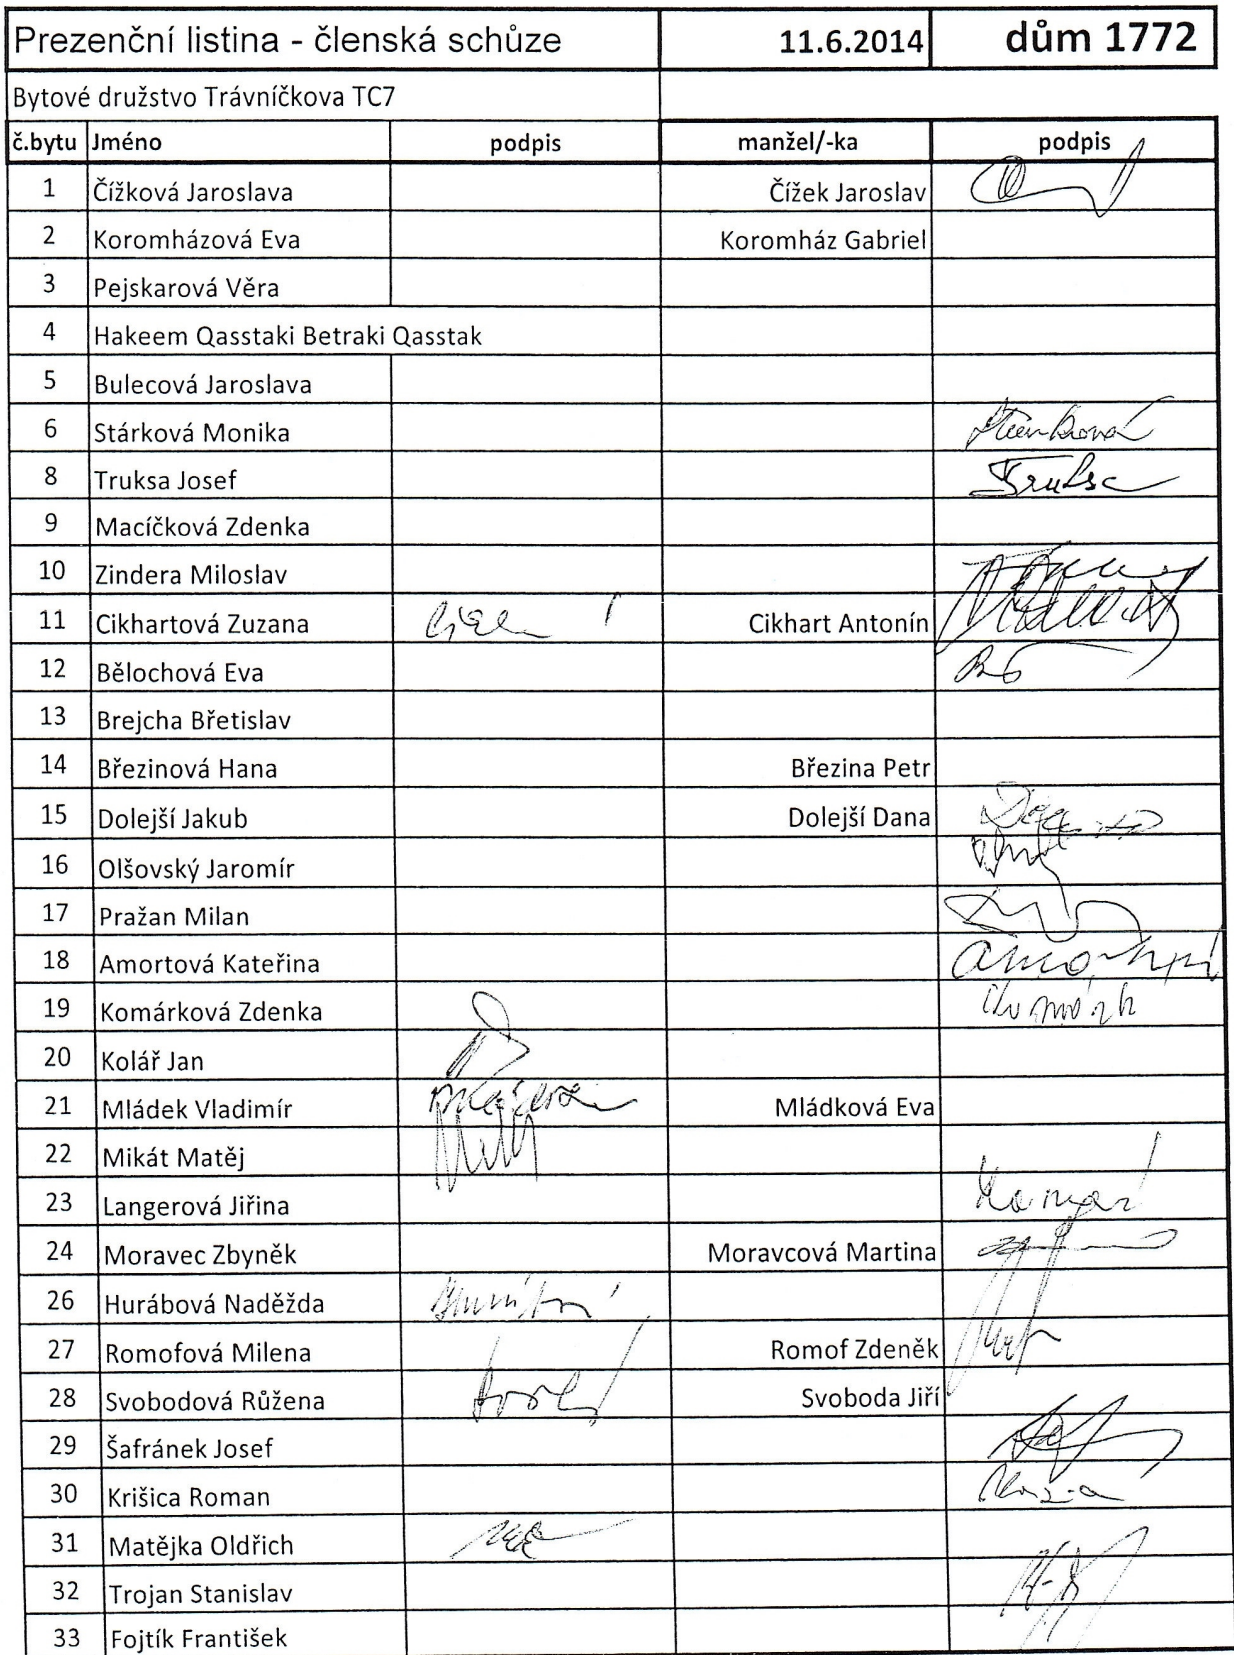 Prezenční listina - členská schůze 11.6.2014 dům 1772
Bytové družstvo Trávníčkova TC7
č.bytu Jméno podpis manžel/-ka podpis
1 Čížková Jaroslava Čížek Jaroslav
2 Koromházová Eva Koromház Gabriel
3 Pejskarová Věra
4 Hakeem Qasstaki Betraki Qasstak
5 Bulecová Jaroslava
6 Stárková Monika
8 Truksa Josef Truksa
9 Macíčková Zdenka
10 Zindera Miloslav
11 Cikhartová Zuzana Cikhart Antonín
12 Bělochová Eva
13 Brejcha Břetislav
14 Březinová Hana Březina Petr
15 Dolejší Jakub Dolejší Dana
16 Olšovský Jaromír
17 Pražan Milan
18 Amortová Kateřina
19 Komárková Zdenka
20 Kolář Jan
21 Mládek Vladimír Mládková Eva
22 Mikát Matěj
23 Langerová Jiřina
24 Moravec Zbyněk Moravcová Martina
26 Hurábová Naděžda
27 Romofová Milena Romof Zdeněk
28 Svobodová Růžena Svoboda Jiří
29 Šafránek Josef
30 Krišica Roman
31 Matějka Oldřich
32 Trojan Stanislav
33 Fojtík František